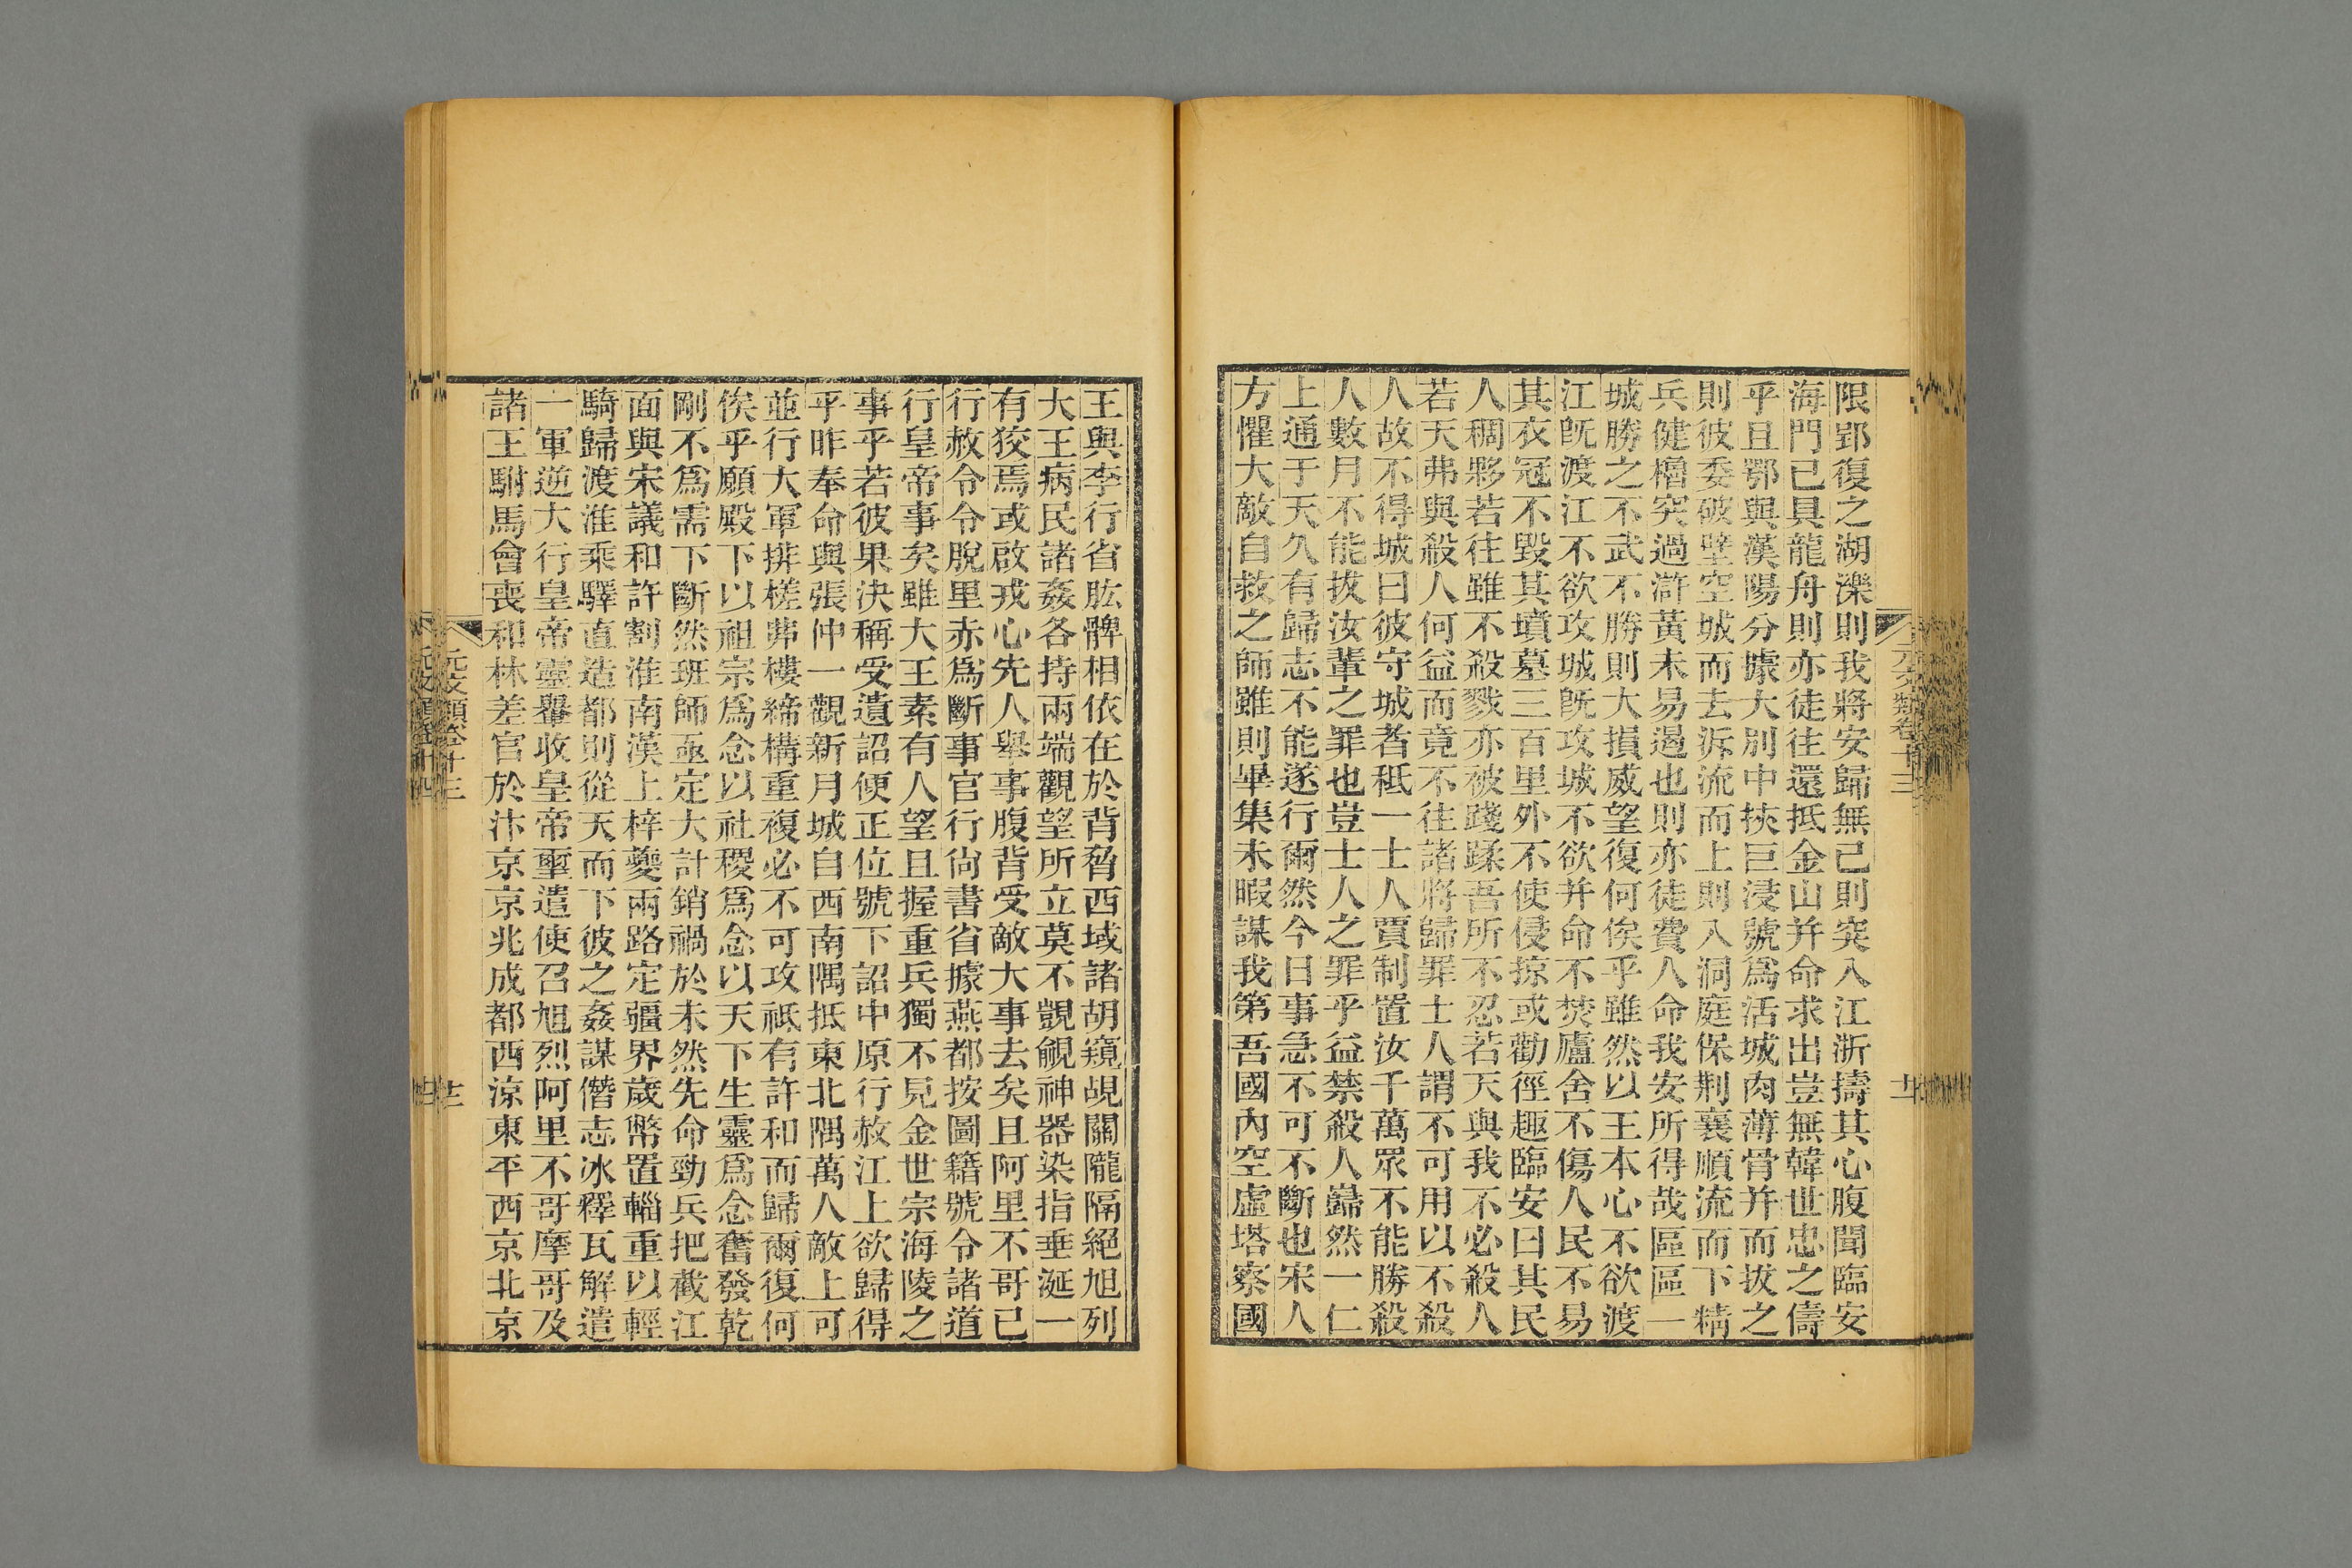 限郢復之湖濼則我將安歸無已則突入江浙擣其心腹聞臨安
海門已具龍舟則亦徒往還抵金山并命求出豈無韓世忠之儔
乎且鄂與漢陽分據大別中挾巨浸號爲活城肉薄骨并而拔之
則彼委破壁空城而去泝流而上則入洞庭保荆襄順流而下精
兵健櫓突過滸黃未易遏也則亦徒費人命我安所得哉區區一
城勝之不武不勝則大損威望復何俟乎雖然以王本心不欲渡
江旣渡江不欲攻城旣攻城不欲并命不焚廬舍不傷人民不易
其衣冠不毀其墳墓三百里外不使侵掠或勸徑趣臨安曰其民
人稠夥若往雖不殺戮亦被踐蹂吾所不忍若天與我不必殺人
若天弗與殺人何益而竟不往諸將歸罪士人謂不可用以不殺
人故不得城曰彼守城者秪一士人賈制置汝千萬眾不能勝殺
人數月不能拔汝輩之罪也豈士人之罪乎益禁殺人巋然一仁
上通于天久有歸志不能遂行爾然今日事急不可不斷也宋人
方懼大敵自救之師雖則畢集未暇謀我第吾國內空虛塔察國
元文類卷十三
十二
王與李行省肱髀相依在於背脅西域諸胡窺覘關隴隔絕旭列
大王病民諸姦各持兩端觀望所立莫不覬覦神器染指垂涎一
有狡焉或啟戎心先人舉事腹背受敵大事去矣且阿里不哥已
行赦令令脫里赤爲斷事官行尙書省據燕都按圖籍號令諸道
行皇帝事矣雖大王素有人望且握重兵獨不見金世宗海陵之
事乎若彼果決稱受遺詔便正位號下詔中原行赦江上欲歸得
乎昨奉命與張仲一觀新月城自西南隅抵東北隅萬人敵上可
並行大軍排槎弗樓締構重複必不可攻祗有許和而歸爾復何
俟乎願殿下以祖宗爲念以社稷爲念以天下生靈爲念奮發乾
剛不爲需下斷然班師亟定大計銷禍於未然先命勁兵把截江
面與宋議和許割淮南漢上梓夔兩路定疆界歲幣置輜重以輕
騎歸渡淮乘驛直造都則從天而下彼之姦謀僭志冰釋瓦解遣
一軍逆大行皇帝靈轝收皇帝璽遣使召旭烈阿里不哥摩哥及
諸王駙馬會喪和林差官於汴京京兆成都西涼東平西京北京
元文類卷十三